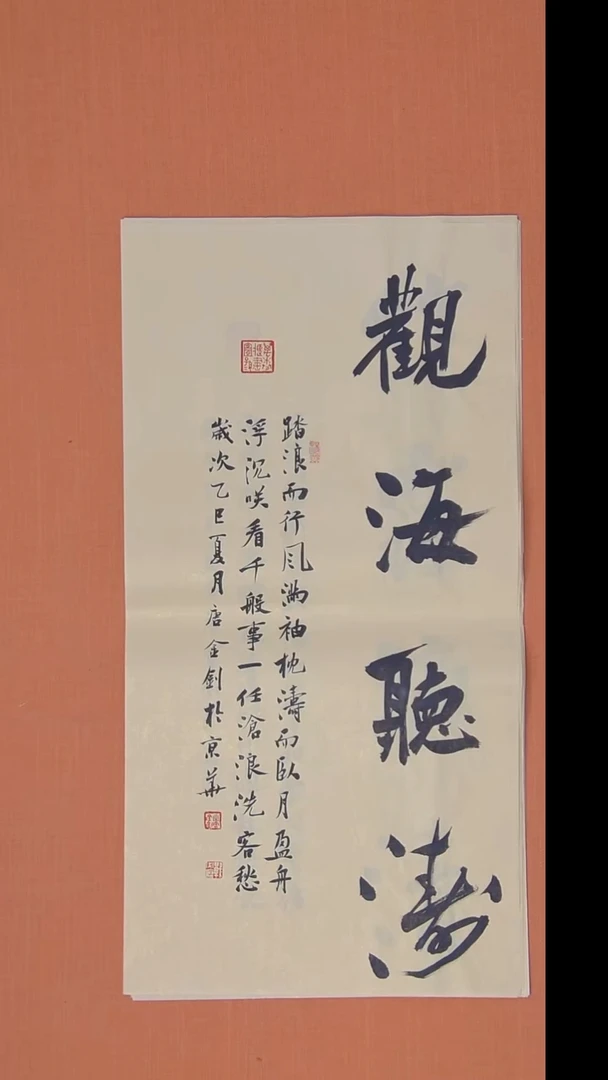 觀海聽濤
踏浪而行風滿袖枕濤而臥月盈舟
浮沉咲看千般事一任滄浪洗客愁
歲次乙巳夏月唐金劍於京華